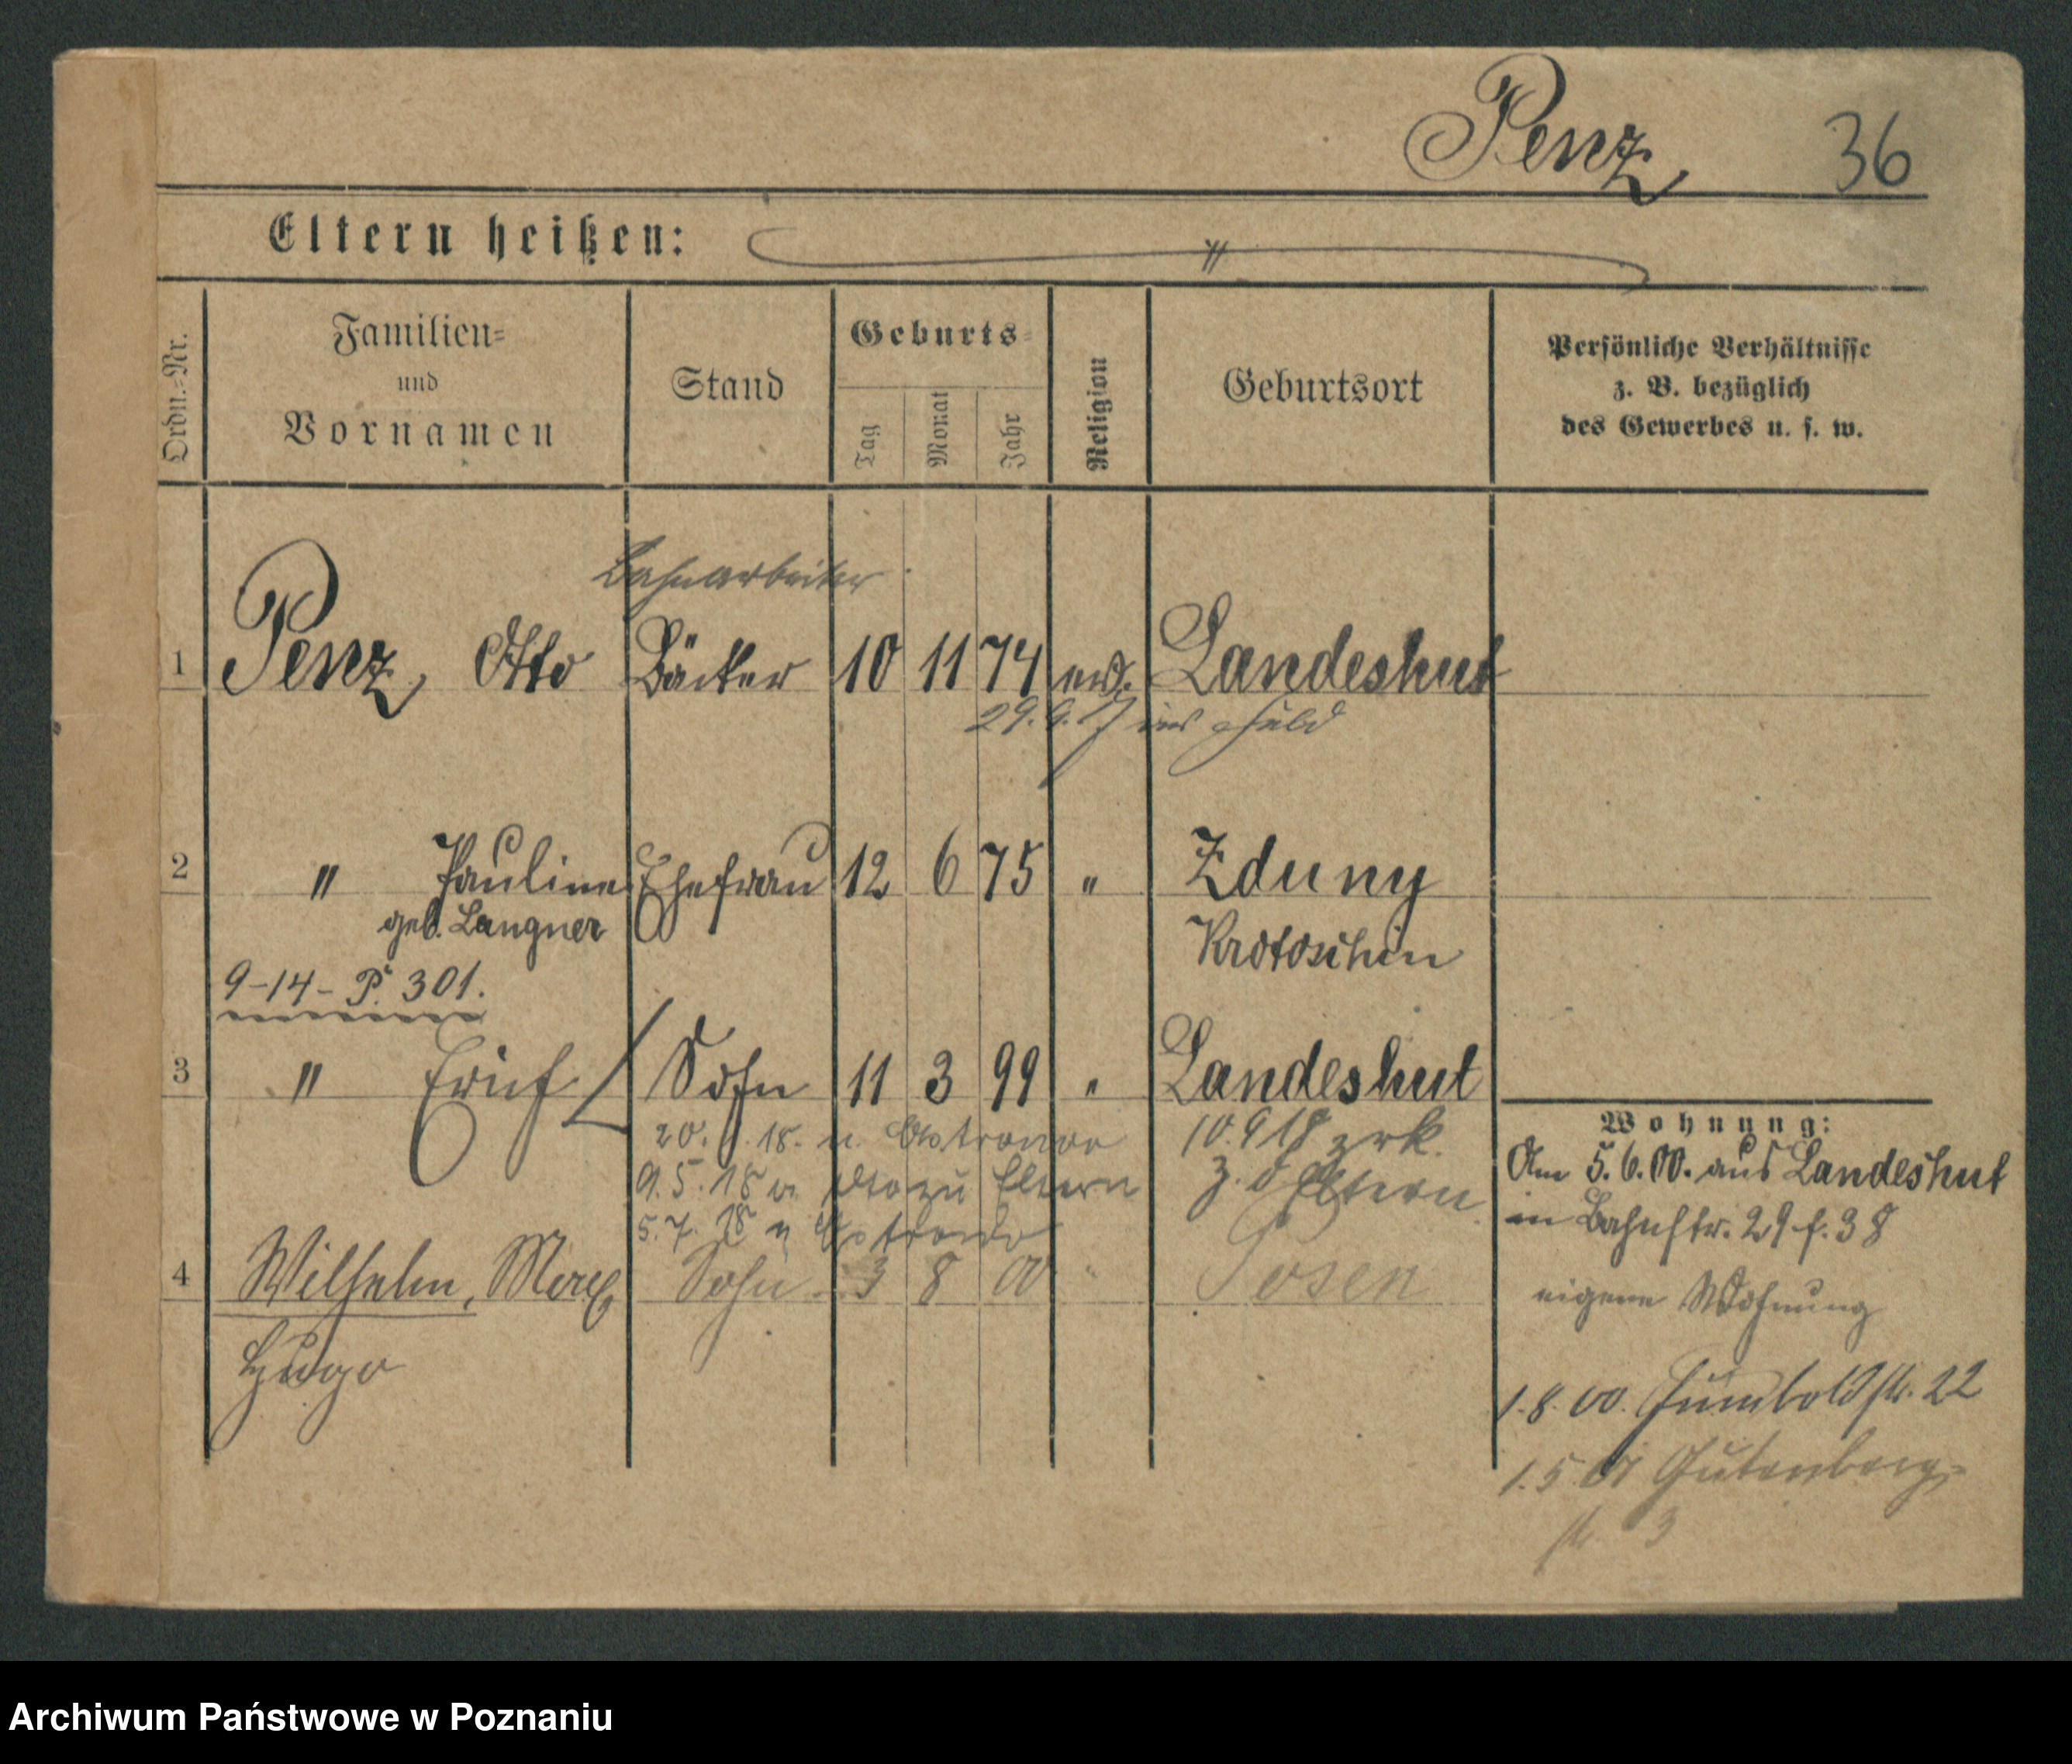 Penz 36
Eltern heißen: "
Ordn.-Nr.
Familien-
und
Vornamen
Stand
Geburts-
Tag
Monat
Jahr
Religion
Geburtsort
Persönliche Verhältnisse
z. B. bezüglich
des Gewerbes u. s. w.
Bahnarbeiter
1 Penz, Otto Bäcker 10 11 74 Landeshut
ins Feld
2 " Pauline Ehefrau 12 6 75 " Zduny
geb. Langner Krotoschin
9-14- P. 301.
3 " Erich Sohn 11 3 99 " Landeshut
20. 18. n. Ostrowo 10.9 18 zrk.
9.5.18 v. dto zu Eltern z. d Eltern
5.7. 18 n Ostrowo
4 Wilhelm, Max Sohn 3 8 00 " Posen
Hugo
Wohnung:
Am 5.6.00. aus Landeshut
in Bahnstr. 29 f. 38
eigene Wohnung
1.8.00. Humboldstr. 22
1.5 Gutenberg-
str. 3
Archiwum Państwowe w Poznaniu